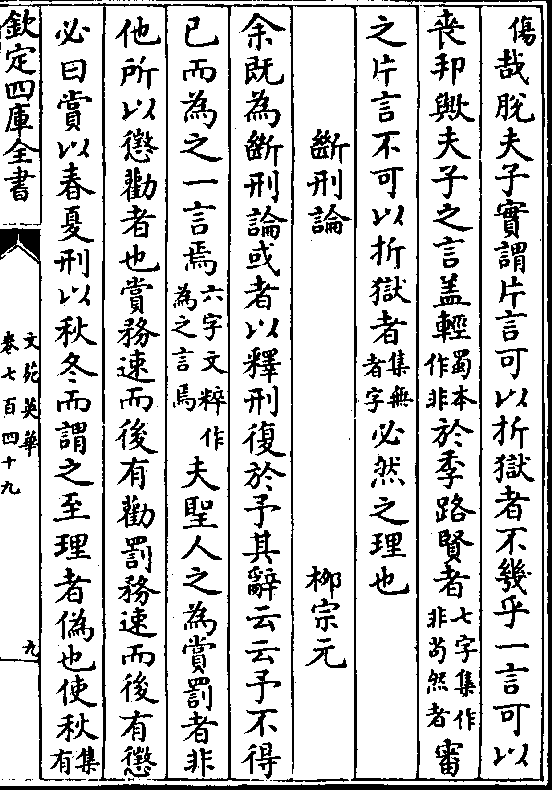 傷哉脫夫子實謂片言可以折獄者不幾乎一言可以
喪邦歟夫子之言盖輕蜀本作非於季路賢者七字集作非苟然者審
之片言不可以折獄者集無者字必然之理也
斷刑論 栁宗元
余既為斷刑論或者以釋刑復於予其辭云云予不得
已而為之一言焉六字文粹作為之言焉夫聖人之為賞罰者非
他所以懲勸者也賞務速而後有勸罰務速而後有懲
必曰賞以春夏刑以秋冬而謂之至理者偽也使秋集有
欽定四庫全書
文苑英華
卷七百四十九
九